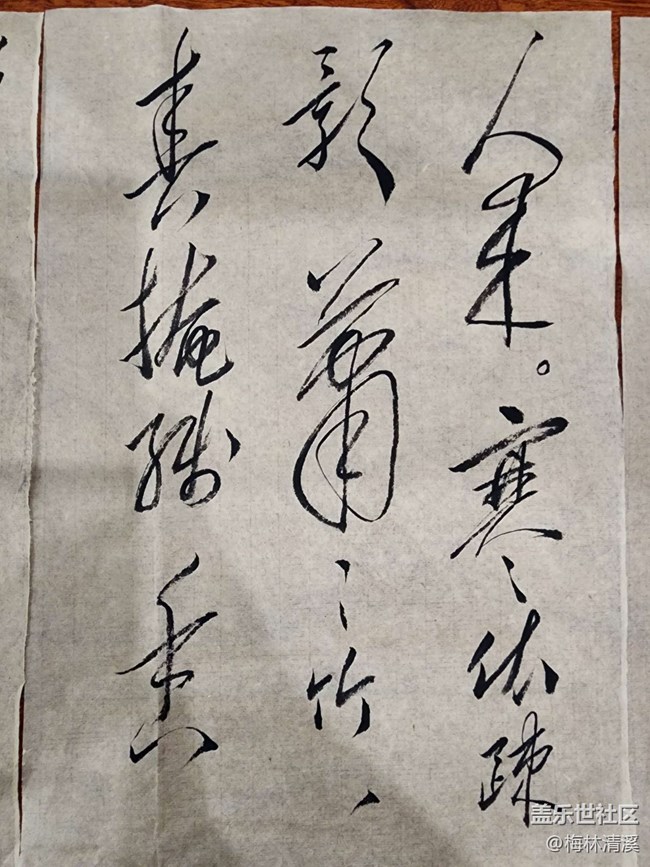 人来。寒依踈
影蕭〻竹、
春掩残香
盖乐世社区
@梅林清溪